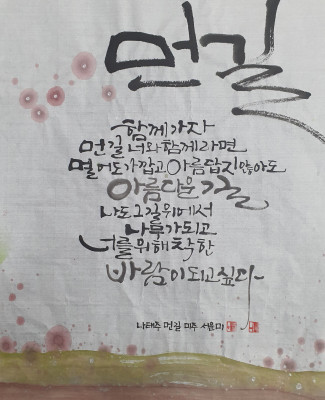 먼길
함께가자
먼길 너와함께라면
멀어도가깝고아름답지않아도
아름다운길
나도그길위에서
나무가되고
너를위해착한
바람이되고싶다
나태주 먼길